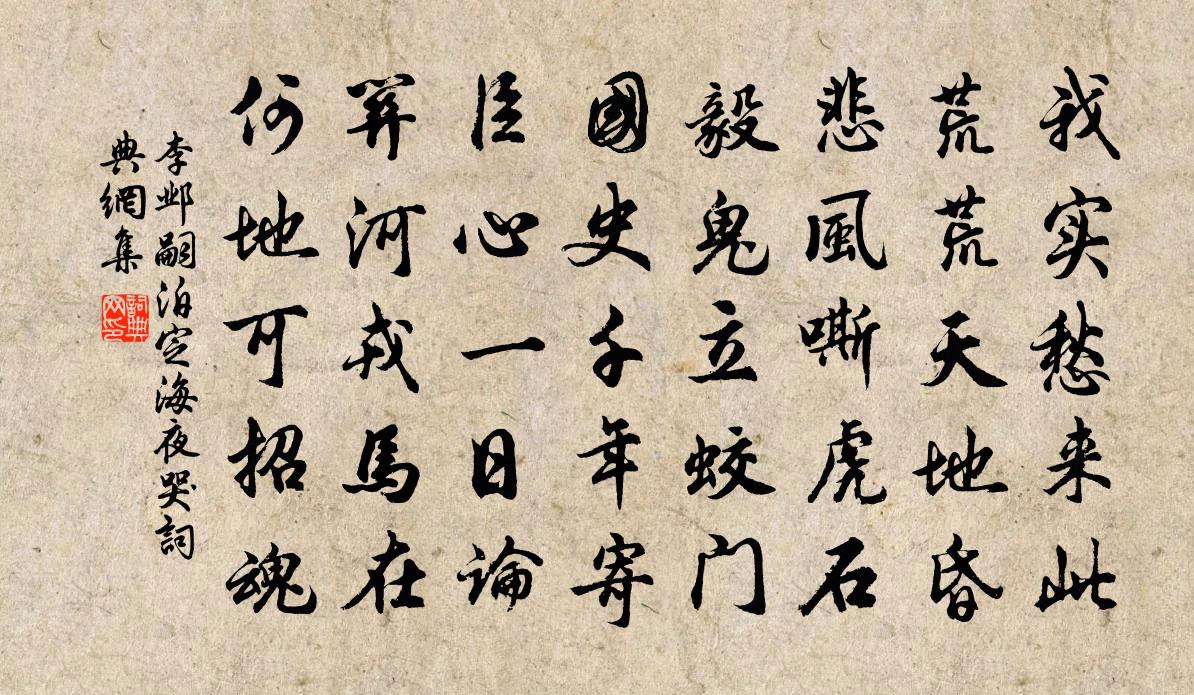 我实愁来此
荒荒天地昏
悲風嘶虎石
毅鬼立蛟门
國史千年寄
臣心一日論
關河戎馬在
何地可招魂
李邺嗣泊定海夜哭詞
典網集
詞典网印